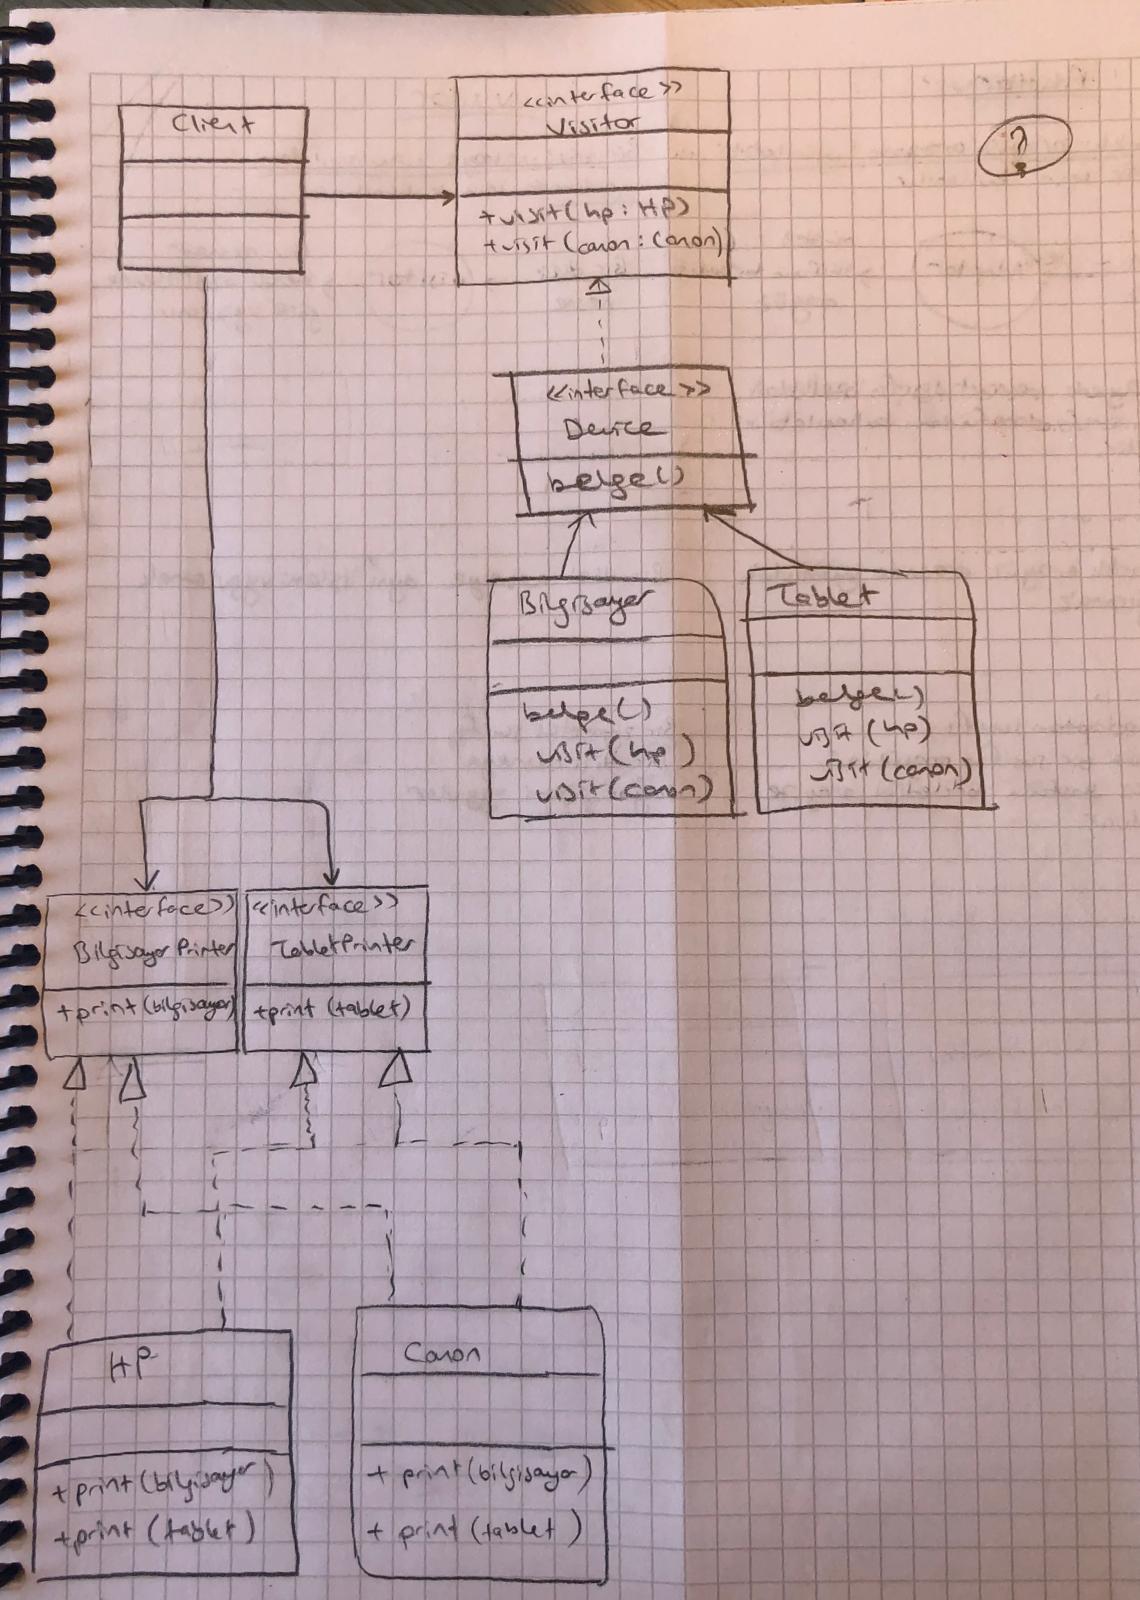 Client
<<interface>>
Visitor
+visit(hp: HP)
+visit(canon: Canon)
?
<<interface>>
Device
belge()
Bilgisayar
belge()
visit(hp)
visit(canon)
Tablet
belge()
visit(hp)
visit(canon)
<<interface>>
BilgisayarPrinter
+print(bilgisayar)
<<interface>>
TabletPrinter
+print (tablet)
HP
+print(bilgisayar)
+print (tablet)
Canon
+ print(bilgisayar)
+ print (tablet)